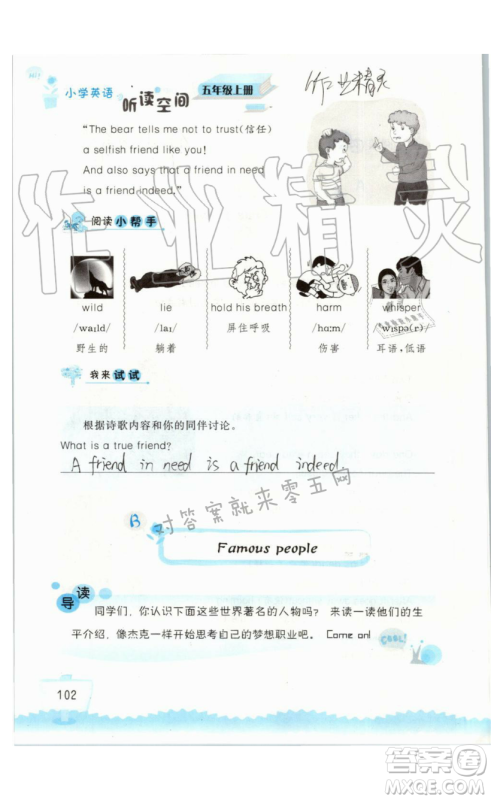 小学英语
听读空间
五年级上册
作业精灵
"The bear tells me not to trust(信任)
a selfish friend like you!
And also says that a friend in need
is a friend indeed."
作业精灵
阅读小帮手
wild lie hold his breath harm whisper
/waɪld/ /laɪ/ 屏住呼吸 /hɑːm/ /ˈwɪspə(r)/
野生的 躺着 伤害 耳语,低语
我来试试
根据诗歌内容和你的同伴讨论。
What is a true friend?
A friend in need is a friend indeed.
对答案就来零五网
B
Famous people
导读
同学们,你认识下面这些世界著名的人物吗? 来读一读他们的生
平介绍,像杰克一样开始思考自己的梦想职业吧。 Come on!
COOL!
102
答案圈
MXQE.COM